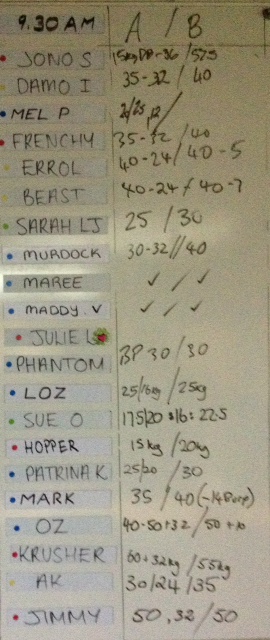 9.30 AM A / B
JONO S 15kg DP-36 / 52.5
DAMO I 35-32 / 40
MEL P
FRENCHY 35-32 / 40
ERROL 40-24 / 40-5
BEAST 40-24 / 40-7
SARAH LJ 25 / 30
MURDOCK 30-32 // 40
MAREE ✓ / ✓
MADDY.V ✓ / ✓
JULIE L
PHANTOM BP 30 / 30
LOZ 25/16kg / 25kg
SUE O 17.5/20 :16: 22.5
HOPPER 15kg / 20kg
PATRINA K 25/20 / 30
MARK 35 / 40
OZ 40-50+32 / 50 +10
KRUSHER 60+32kg / 55kg
AK 30/24 / 35
JIMMY 50,32 / 50